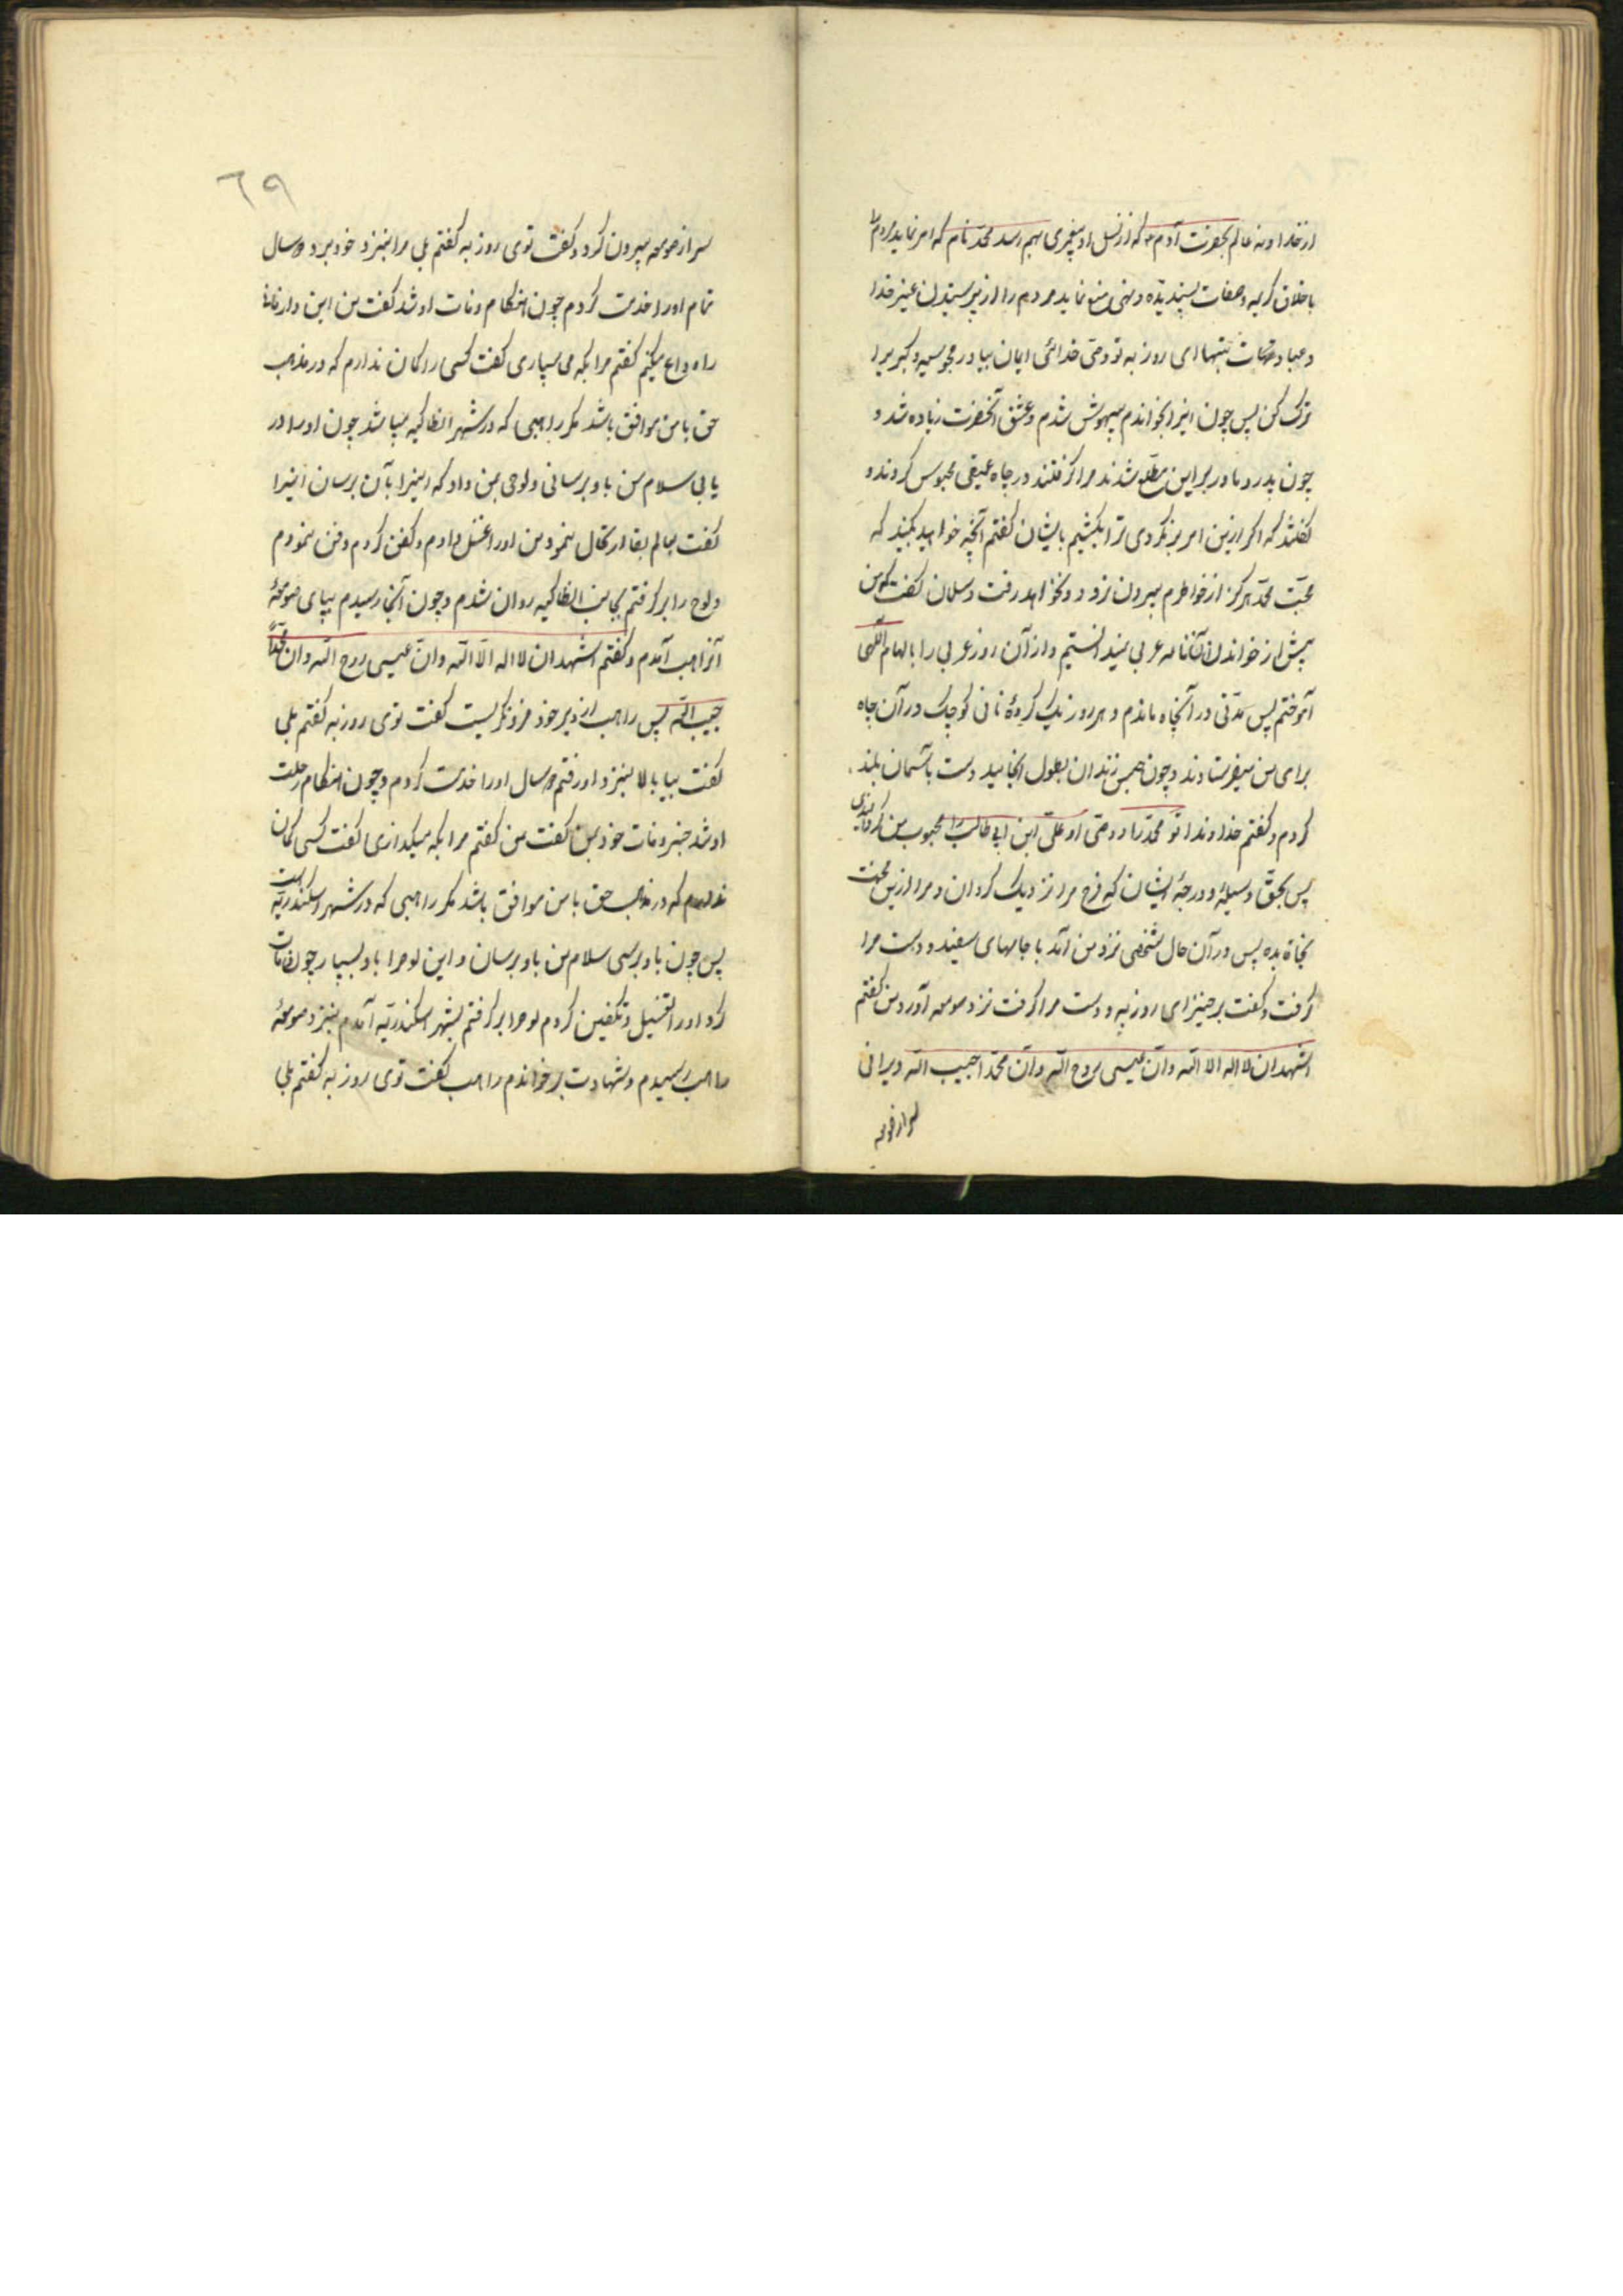 از خداوند عالم بحضرت آدم ع که از نسل او پیغمبری بهم رسد محمد نام که امر نماید مردم را
باخلاق کریمه و صفات پسندیده و نهی و منع نماید مردم را از پرستیدن غیر خدا
و عبادت بتها ای روز به تو وصی خدائی ایمان بیاور مجوسیه و گبر را
ترک کن پس چون اینرا بخواندم بیهوش شدم و عشق آنحضرت زیاده شد و
چون پدر و مادر بر این مطلع شدند مرا گرفتند در چاه عمیقی محبوس کردند و
گفتند که اگر ازین امر برنگردی ترا بکشیم بایشان گفتم آنچه خواهید بکنید که
محبت محمد هرگز از خواطرم بیرون نرود و نخواهد رفت و سلمان گفت که من
پیش از خواندن آن نامه عربی نمیدانستم و از آن روز عربی را بالهام الهی
آموختم پس مدتی در آنچاه ماندم و هر روز یک گرده نانی کوچک در آن چاه
برای من میفرستادند و چون حبس زندان بطول انجامید دست بآسمان بلند
کردم و گفتم خداوندا تو محمد را و وصی او علی ابن ابی طالب را محبوب من گردانیدی
پس بحق وسیله و درجه ایشان که فرج مرا نزدیک گردان و مرا ازین محنت
نجاة بده پس در آن حال شخصی نزد من آمد با جامهای سفید و دست مرا
گرفت و گفت برخیز ای روز به و دست مرا گرفت نزد صومعه آورد من گفتم
اشهد ان لا اله الا الله و ان عیسی روح الله و ان محمدا حبیب الله دیرانی
سر از صومعه
٦٩
سر از صومعه بیرون کرد و گفت توی روز به گفتم بلی مرا بنزد خود برد دو سال
تمام او را خدمت کردم چون هنگام وفات او شد گفت من این دار فانی
را وداع میکنم گفتم مرا بکه می سپاری گفت کسی را گمان ندارم که در مذهب
حق با من موافق باشد مگر راهبی که در شهر انطاکیه میباشد چون او را در
یابی سلام من باو برسانی و لوحی بمن داد که اینرا بآن برسان اینرا
گفت بعالم بقا ارتحال نمود من او را غسل دادم و کفن کردم و دفن نمودم
و لوح را برگرفتم بجانب انطاکیه روان شدم و چون آنجا رسیدم بپای صومعه
آنراهب آمدم و گفتم اشهد ان لا اله الا الله و ان عیسی روح الله و ان محمدا
حبیب الله پس راهب از دیر خود فرو نگریست گفت توی روز به گفتم بلی
گفت بیا بالا بنزد او رفتم دو سال او را خدمت کردم و چون هنگام رحلت
او شد خبر وفات خود بمن گفت من گفتم مرا بکه میگذاری گفت کسی گمان
ندارم که در مذهب حق با من موافق باشد مگر راهبی که در شهر اسکندریه است
پس چون باو برسی سلام من باو برسان و این لوحرا باو بسپار چون وفات
کرد او را تغسیل و تکفین کردم لوحرا برگرفتم بشهر اسکندریه آمدم بنزد صومعه
راهب رسیدم و شهادت بر خواندم راهب گفت توی روز به گفتم بلی